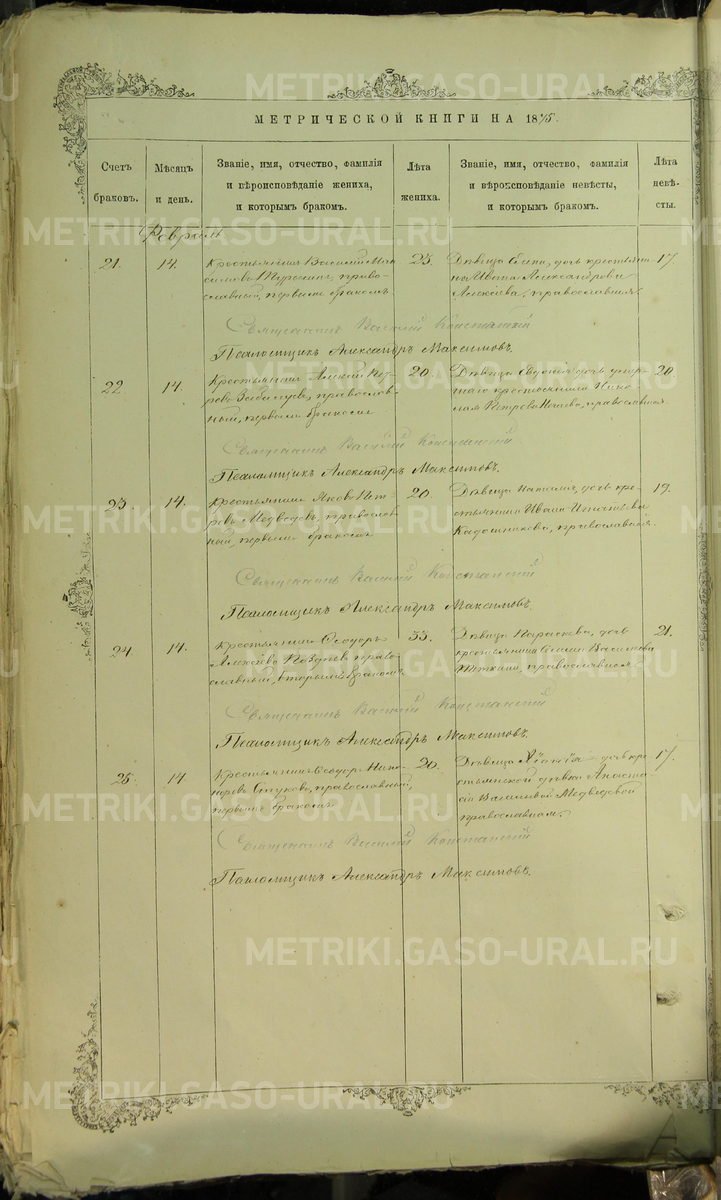 МЕТРИЧЕСКОЙ КНИГИ НА 1875.
Счетъ браковъ.
Мѣсяцъ и день.
Званіе, имя, отчество, фамилія
и вѣроисповѣданіе жениха,
и которымъ бракомъ.
Лѣта жениха.
Званіе, имя, отчество, фамилія
и вѣроисповѣданіе невѣсты,
и которымъ бракомъ.
Лѣта невѣ-
сты.
Февраль
21. 14. Крестьянинъ Василій Мак
симовъ право-
славный, первымъ бракомъ
25. Дѣвица Анна, дочь крестьяни
на Ивана Александрова
Алексѣева, православная 17.
Священникъ Василій Констанскій
Псаломщикъ Александръ Максимовъ.
22. 14. Крестьянинъ Алексѣй Пет
ровъ православ
ный, первымъ бракомъ
20. Дѣвица Евдокія дочь умер
шаго крестьянина Нико
лая Петрова православная. 20.
Священникъ Василій Констанскій
Псаломщикъ Александръ Максимовъ.
23. 14. Крестьянинъ Яковъ Пет
ровъ Медвѣдевъ, православ
ный, первымъ бракомъ
20. Дѣвица Наталія, дочь кре-
стьянина Ивана Игнатьева
Кадошникова, православная. 19.
Священникъ Василій Констанскій
Псаломщикъ Александръ Максимовъ.
24 14. Крестьянинъ Ѳеодоръ
Алексѣевъ право-
славный, вторымъ бракомъ
33. Дѣвица Параскева, дочь
крестьянина Василива
православная 21.
Священникъ Василій Констанскій
Псаломщикъ Александръ Максимовъ.
25. 14 Крестьянинъ Ѳеодоръ
православный,
первымъ бракомъ
20. Дѣвица дочь кре
стьянской дѣвки Анаста
сіи Васильевой Медвѣдевой
православная. 17.
Священникъ Василій Констанскій
Псаломщикъ Александръ Максимовъ.
METRIKI.GASO-URAL.RU
METRIKI.GASO-URAL.RU
METRIKI.GASO-URAL.RU
METRIKI.GASO-URAL.RU
METRIKI.GASO-URAL.RU
METRIKI.GASO-URAL.RU
METRIKI.GASO-URAL.RU
METRIKI.GASO-URAL.RU